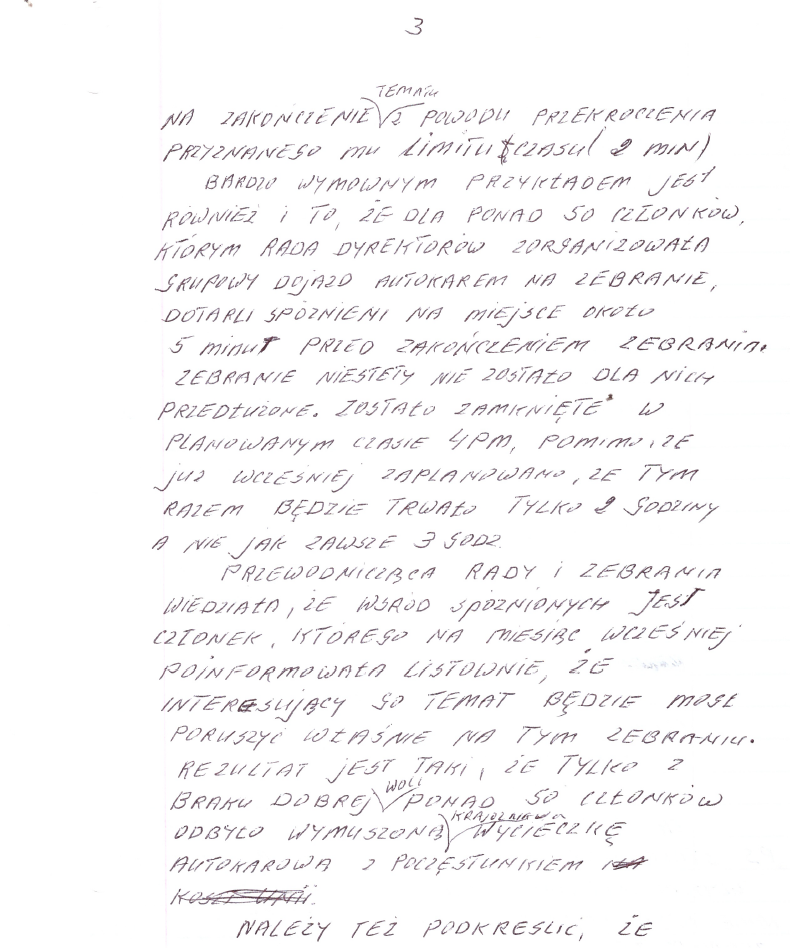 3
TEMATU
NA ZAKOŃCZENIE Z POWODU PRZEKROCZENIA
PRZYZNANEGO MU LIMITU CZASU (2 MIN)
BARDZO WYMOWNYM PRZYKŁADEM JEST
RÓWNIEŻ I TO, ŻE DLA PONAD 50 CZŁONKÓW,
KTÓRYM RADA DYREKTORÓW ZORGANIZOWAŁA
GRUPOWY DOJAZD AUTOKAREM NA ZEBRANIE,
DOTARLI SPÓŹNIENI NA MIEJSCE OKOŁO
5 MINUT PRZED ZAKOŃCZENIEM ZEBRANIA.
ZEBRANIE NIESTETY NIE ZOSTAŁO DLA NICH
PRZEDŁUŻONE. ZOSTAŁO ZAMKNIĘTE W
PLANOWANYM CZASIE 4PM, POMIMO, ŻE
JUŻ WCZEŚNIEJ ZAPLANOWANO, ŻE TYM
RAZEM BĘDZIE TRWAŁO TYLKO 2 GODZINY
A NIE JAK ZAWSZE 3 GODZ.
PRZEWODNICZĄCA RADY I ZEBRANIA
WIEDZIAŁA, ŻE WŚRÓD SPÓŹNIONYCH JEST
CZŁONEK, KTÓREGO NA MIESIĄC WCZEŚNIEJ
POINFORMOWAŁA LISTOWNIE, ŻE
INTERESUJĄCY GO TEMAT BĘDZIE MÓGŁ
PORUSZYĆ WŁAŚNIE NA TYM ZEBRANIU.
REZULTAT JEST TAKI, ŻE TYLKO Z
WOLI
BRAKU DOBREJ PONAD 50 CZŁONKÓW
KRAJOZNAWCZĄ
ODBYŁO WYMUSZONĄ WYCIECZKĘ
AUTOKAROWA Z POCZĘSTUNKIEM NA
KOSZT UNII.
NALEŻY TEŻ PODKREŚLIĆ, ŻE